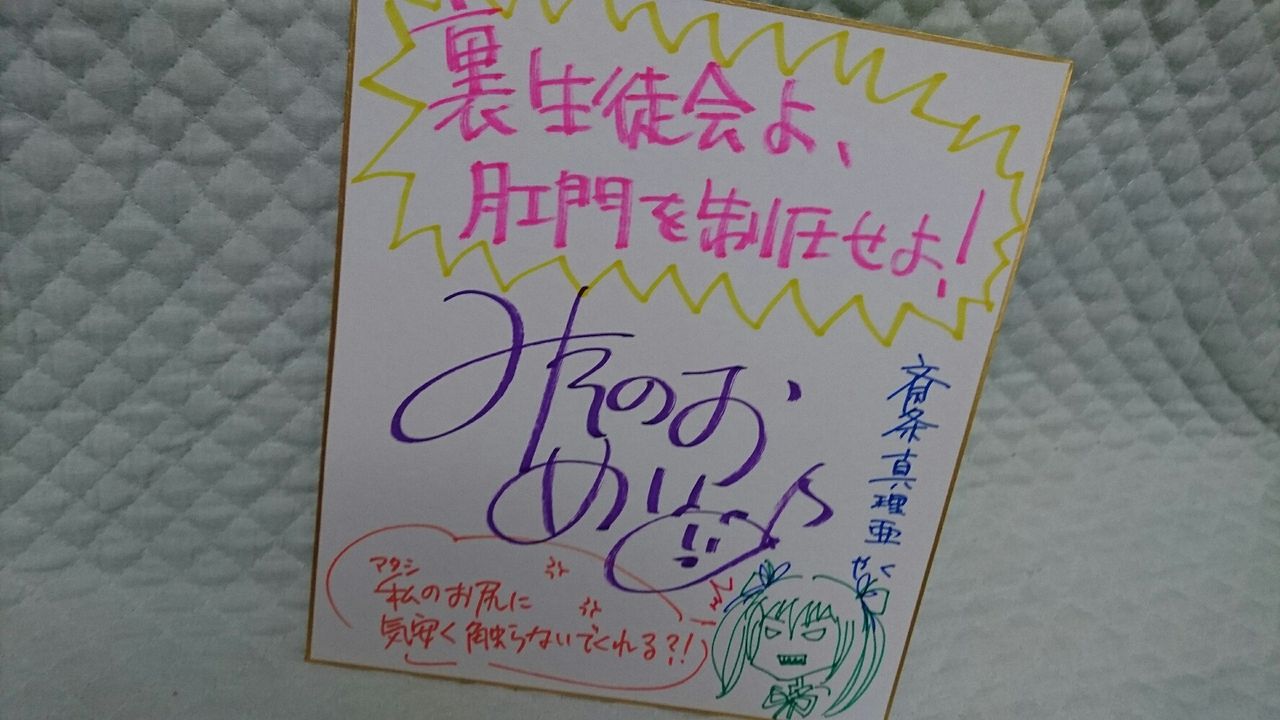 裏生徒会よ、
肛門を制圧せよ!
みそのお
めい
斎条真理亜
やく
マタシ
私のお尻に
気安く触らないでくれる?!